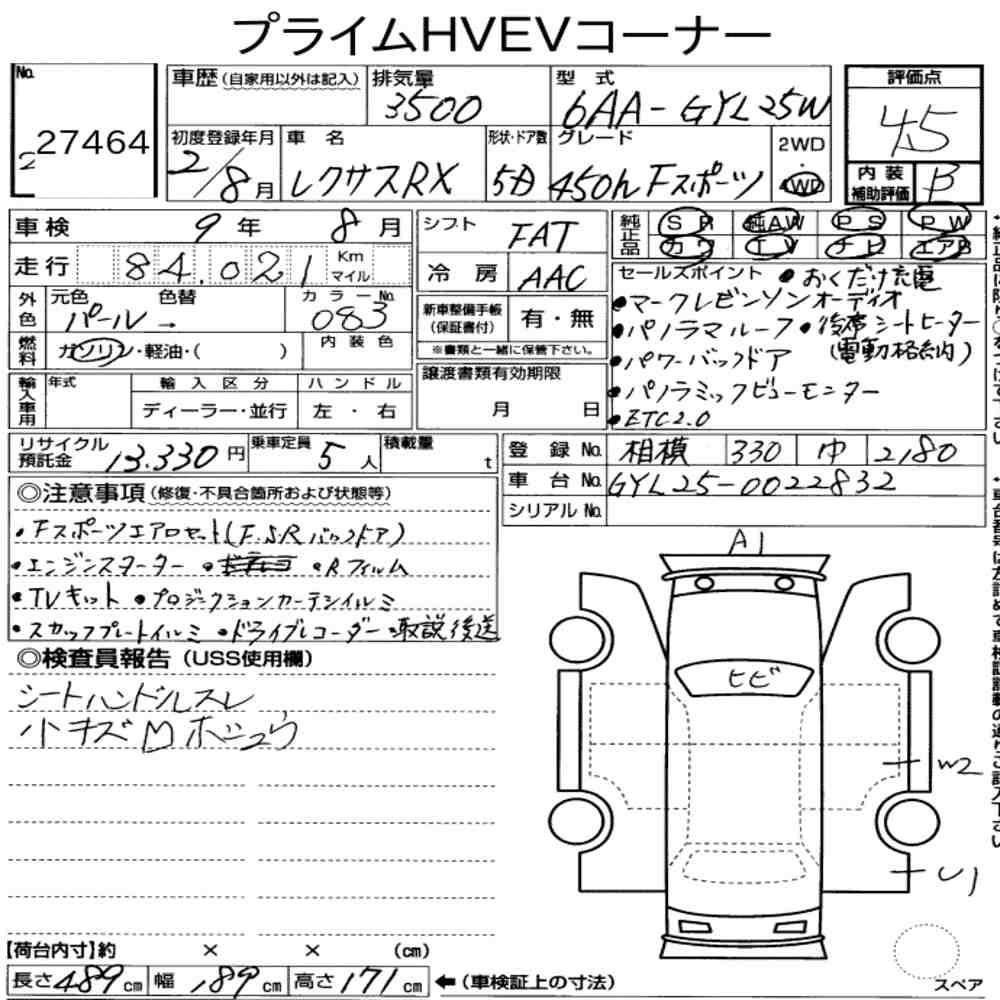 プライムHVEVコーナー
No.
27464
車歴(自家用以外は記入)
排気量
3500
型式
6AA-GYL25W
評価点
4.5
初度登録年月
2/8月
車名
レクサスRX
形状・ドア数
5D
グレード
450h Fスポーツ
2WD
・
4WD
内装
補助評価
B
車検 9年 8月
走行 84,021 Km マイル
シフト FAT
冷房 AAC
純正品
SR 純AW PS PW
カワ TV ナビ エアB
外色
元色 色替
パール →
カラーNo.
083
燃料
ガソリン・軽油・( )
内装色
新車整備手帳
(保証書付)
有・無
※書類と一緒に保管下さい。
セールスポイント ●おくだけ充電
●マークレビンソンオーディオ
●パノラマルーフ ●後席シートヒーター
●パワーバックドア (電動格納)
●パノラミックビューモニター
●ETC2.0
輸入車用
年式
輸入区分
ディーラー・並行
ハンドル
左・右
譲渡書類有効期限
月 日
リサイクル
預託金
13,330円
乗車定員
5人
積載量
t
登録No. 相模 330 ゆ 2180
車台No. GYL25-0022832
シリアルNo.
◎注意事項(修復・不具合箇所および状態等)
・Fスポーツエアロセット(F.S.Rバックドア)
・エンジンスターター ●Rフィルム
・TVキット ●プロジェクションカーテシイルミ
・スカッフプレートイルミ ●ドライブレコーダー ・取説後送
◎検査員報告(USS使用欄)
シートハンドルスレ
小キズ
A1
ヒビ
W2
U1
スペア
【荷台内寸】約 × × (cm)
長さ489cm 幅189cm 高さ171cm ←(車検証上の寸法)